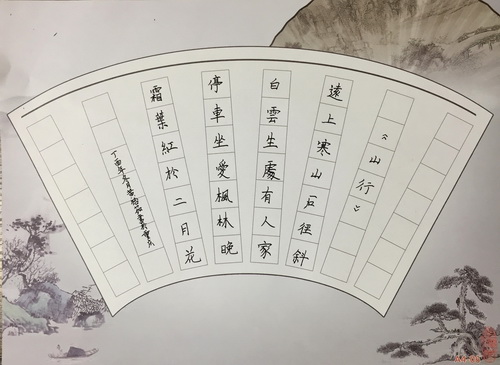 《山行》
遠上寒山石径斜
白雲生處有人家
停車坐愛楓林晚
霜葉紅於二月花
丁酉年冬月